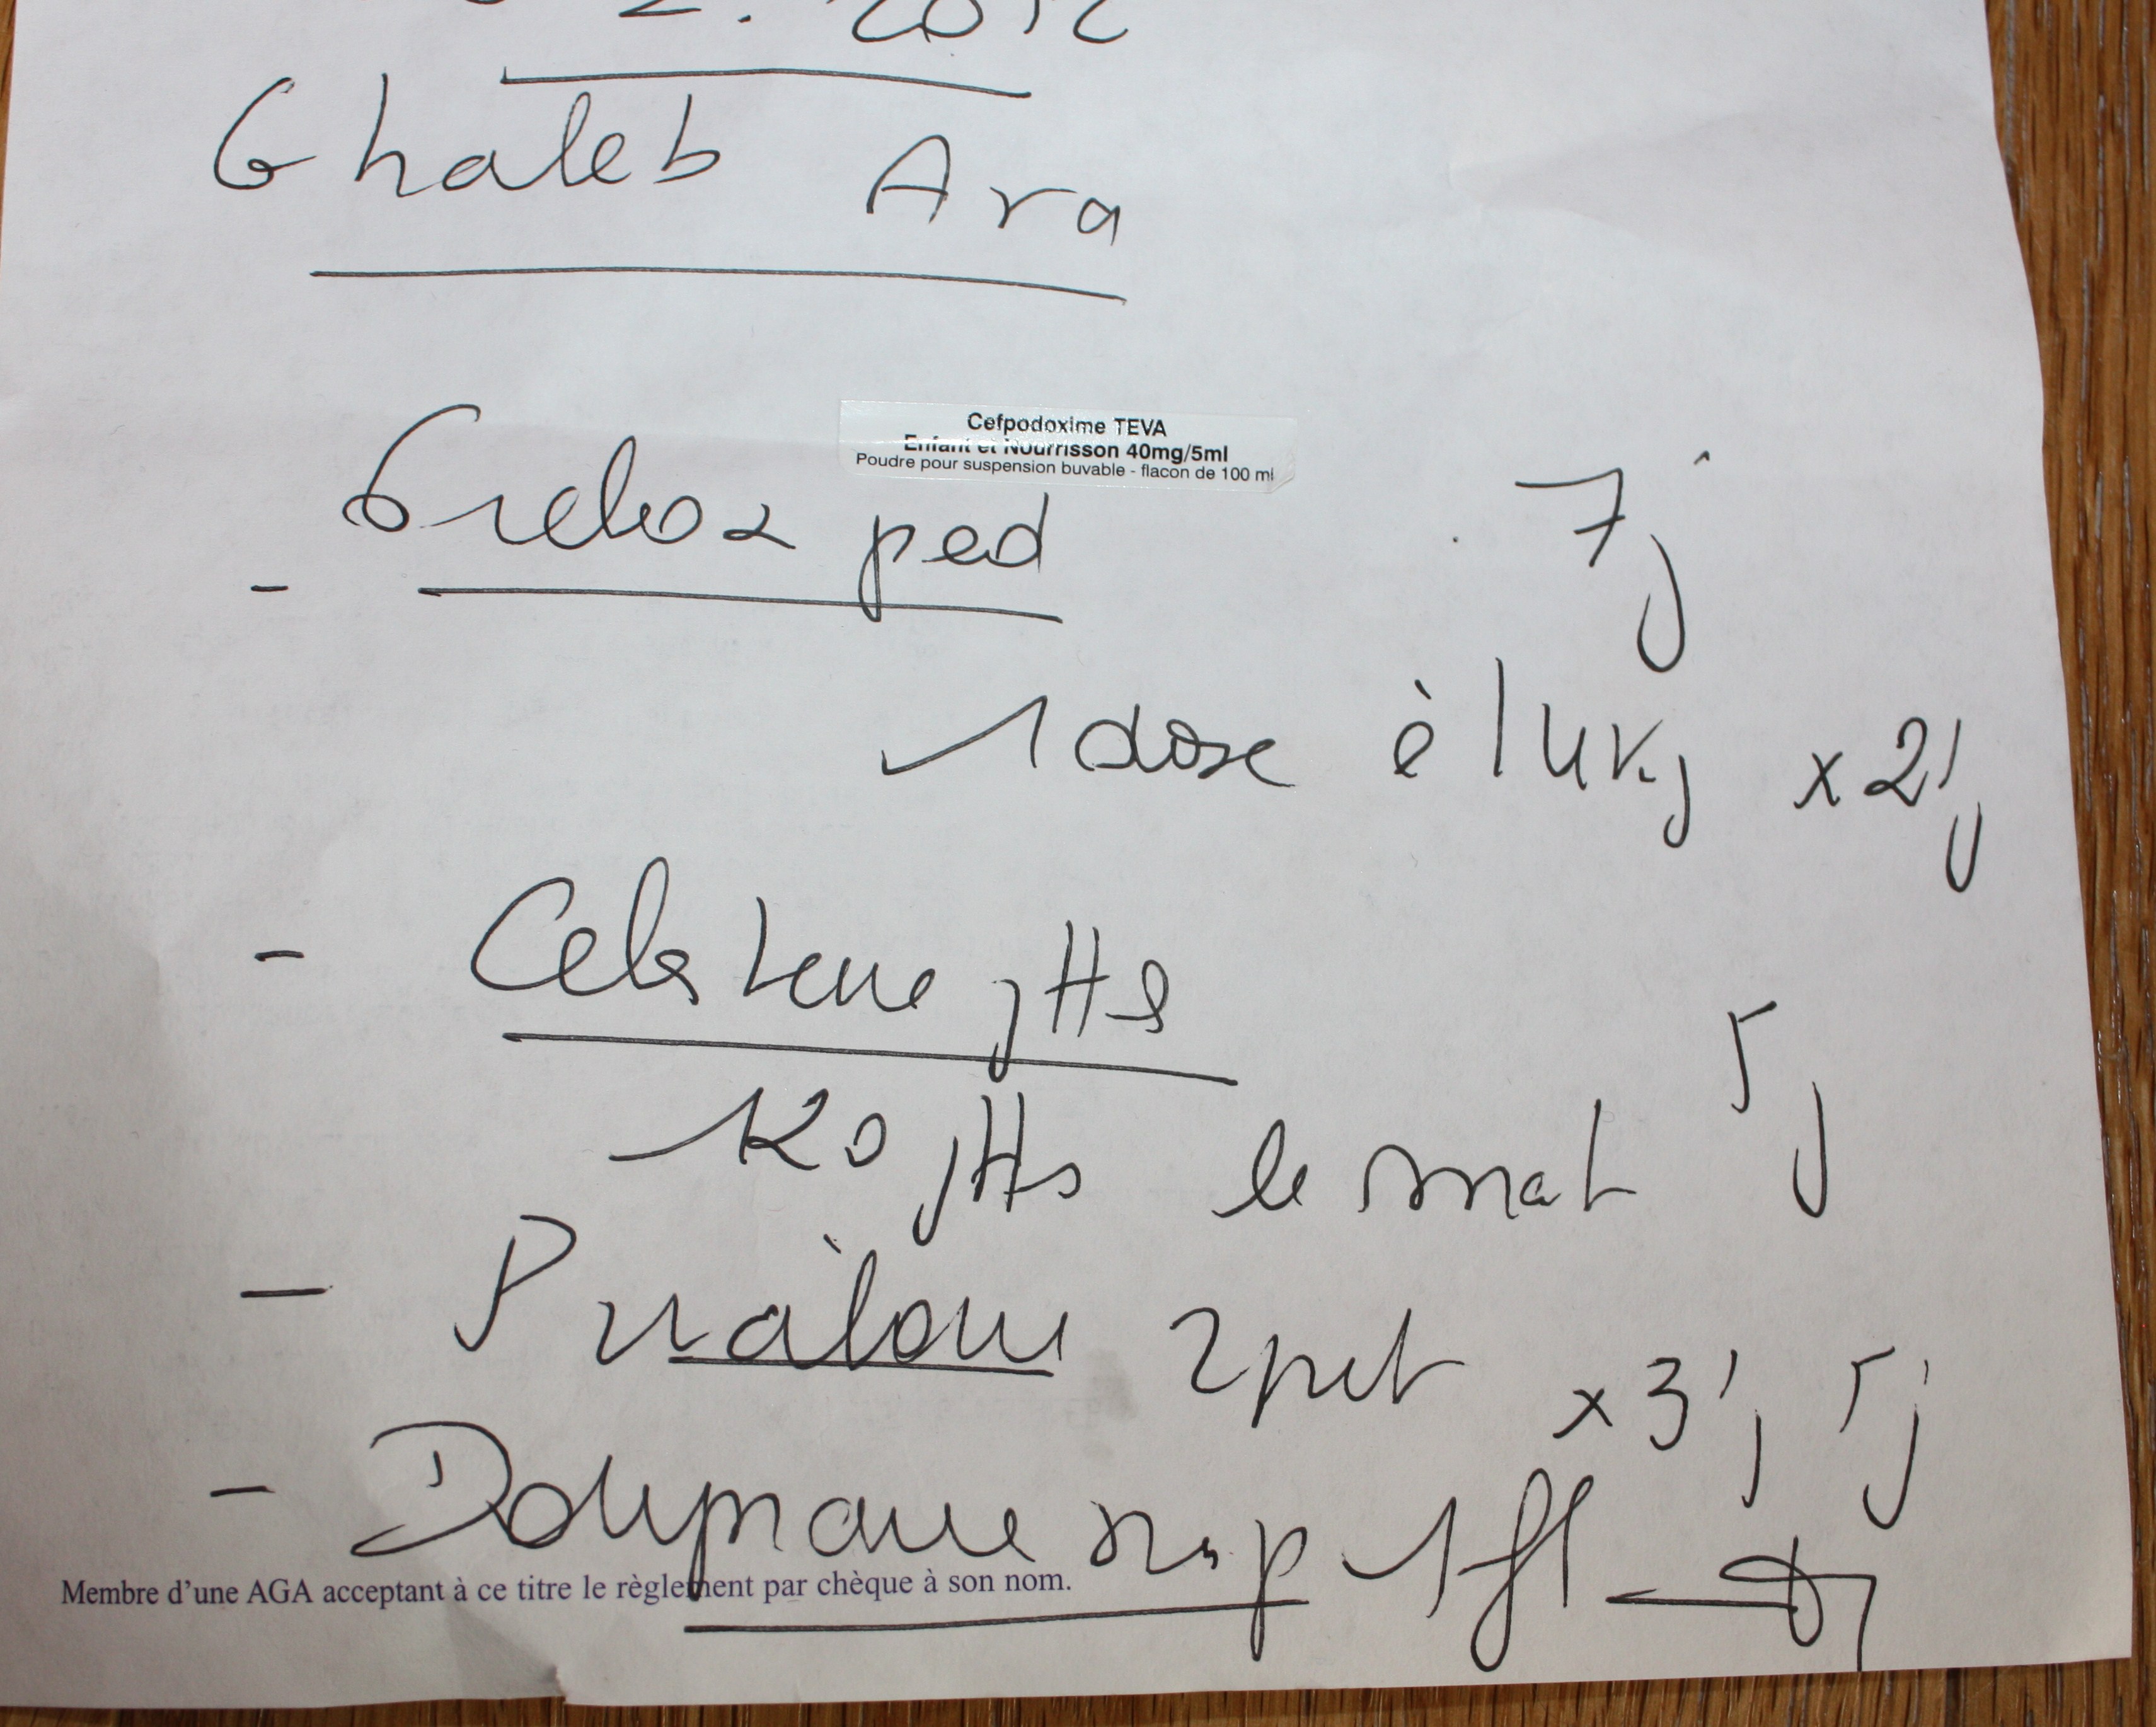 2. 2012
Ghaleb Ara
Cefpodoxime TEVA
Enfant et Nourrisson 40mg/5ml
Poudre pour suspension buvable - flacon de 100 ml
- Orelox ped 7j
1 dose à 14 kg x 2/j
- Celestene gtts
120 gtts le mat 5j
- 2 x 3/j 5j
- Doliprane sirop 1 fl
Membre d'une AGA acceptant à ce titre le règlement par chèque à son nom.